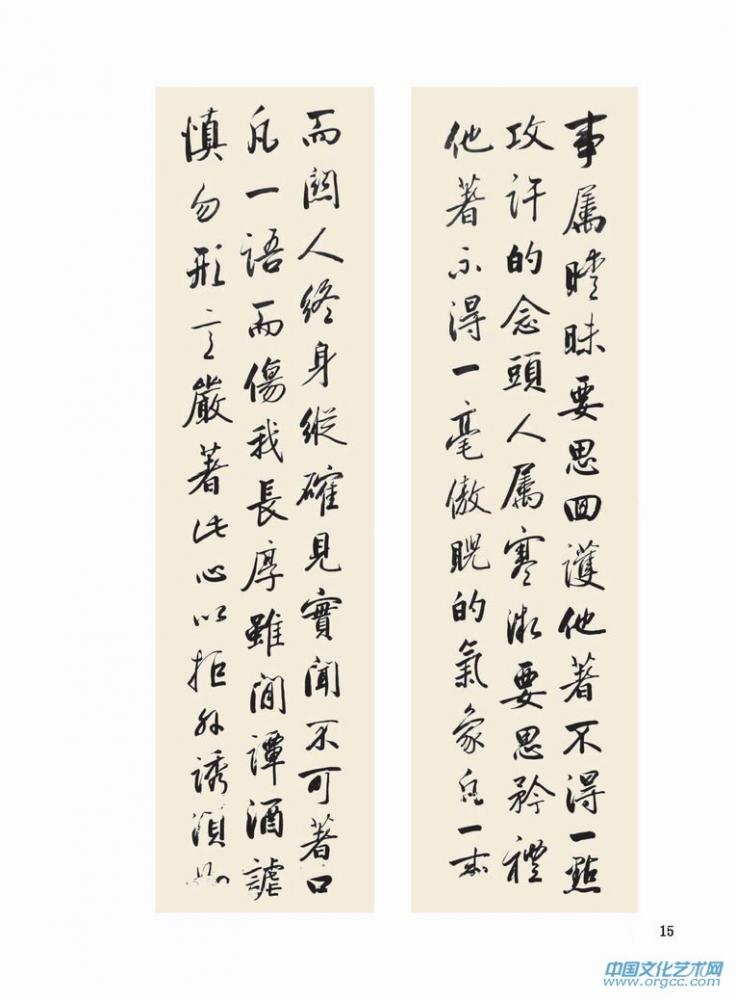 事属曖昧要思回護他著不得一點
攻訐的念頭人属寒微要思矜禮
他著不得一毫傲睨的氣象凡一事
而關人終身縱確見實聞不可著口
凡一語而傷我長厚雖閒譚酒謔
慎勿形言嚴著此心以拒外誘須如
15
中国文化艺术网
www.orgcc.com